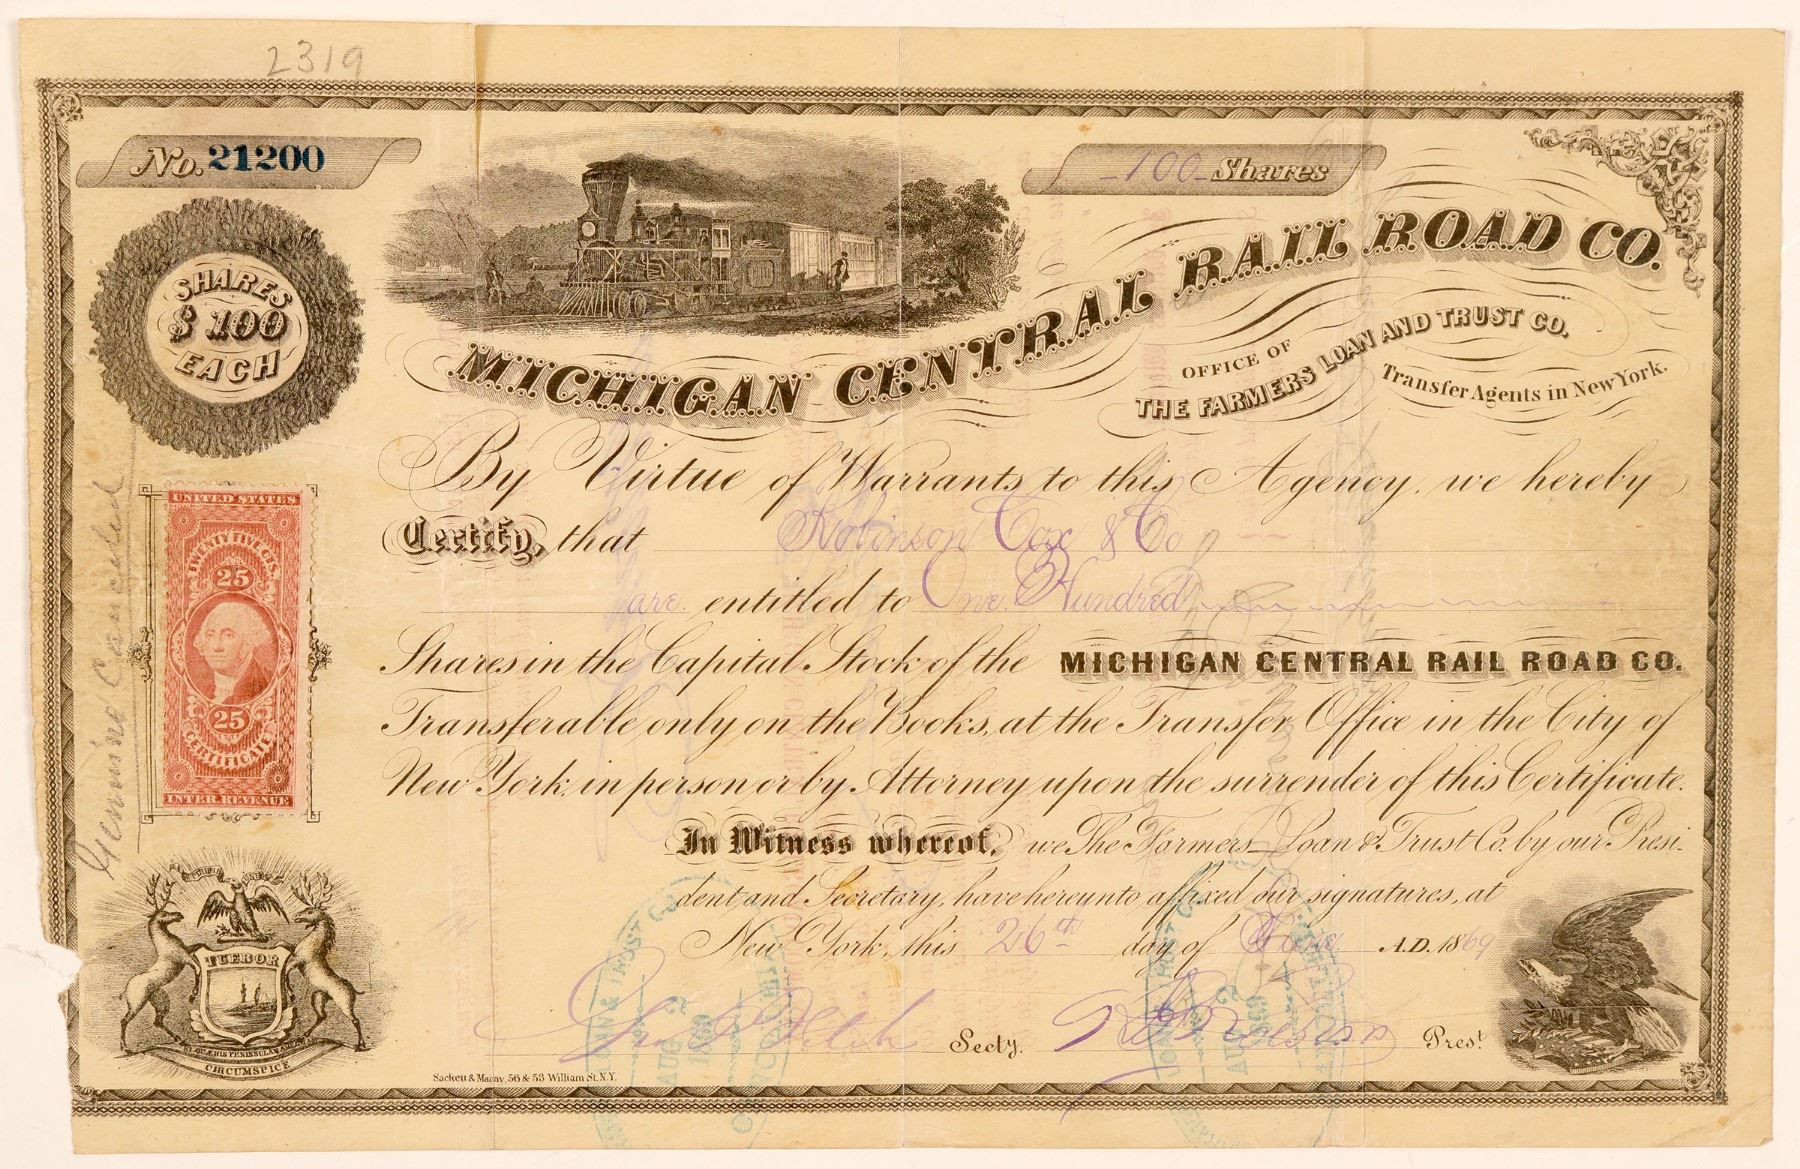 2319
No. 21200
100 Shares
SHARES
$100
EACH
MICHIGAN CENTRAL RAIL ROAD CO.
OFFICE OF
THE FARMERS LOAN AND TRUST CO.
Transfer Agents in New York.
By Virtue of Warrants to this Agency, we hereby
Certify, that Robinson Cox & Co
are entitled to One Hundred
Shares in the Capital Stock of the MICHIGAN CENTRAL RAIL ROAD CO.
Transferable only on the Books, at the Transfer Office in the City of
New York, in person or by Attorney upon the surrender of this Certificate.
In Witness whereof, we The Farmers Loan & Trust Co. by our Presi-
dent and Secretary, have hereunto affixed our signatures, at
New York, this 26th day of June A.D. 1869
Secty.
Prest
Genuine Canceled
UNITED STATES
TWENTY FIVE CTS.
25
25
CERTIFICATE
INTER. REVENUE
TUEBOR
CIRCUMSPICE
Sackett & Mackay, 56 & 53 William St. N.Y.
LOAN & TRUST CO
AUG 2
1869
LOAN & TRUST CO
AUG 2
1869